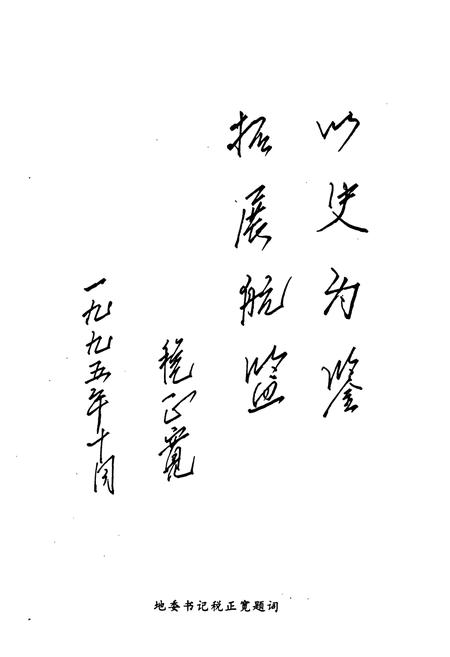 以史为鉴
拓展航监
税正宽
一九九五年十月
地委书记税正宽题词